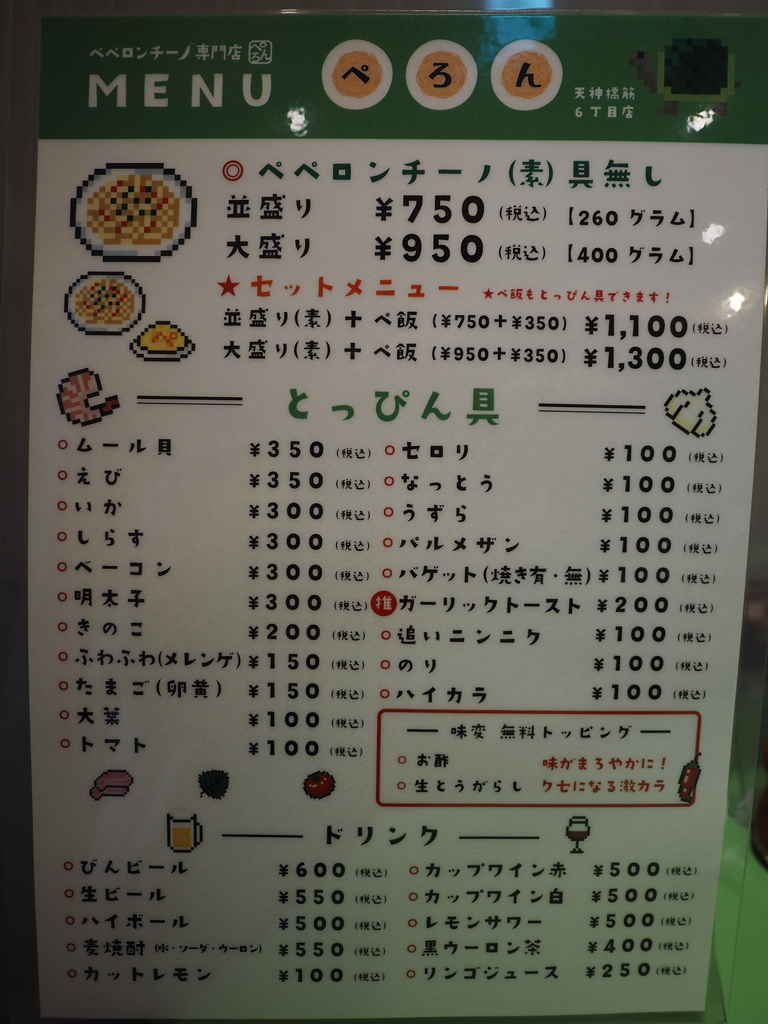 ペペロンチーノ専門店 ぺろん
MENU
ぺろん
天神橋筋
6丁目店
◎ペペロンチーノ(素)具無し
並盛り ¥750(税込)【260グラム】
大盛り ¥950(税込)【400グラム】
★セットメニュー ★ペ飯もとっぴん具できます!
並盛り(素)+ペ飯(¥750+¥350)¥1,100(税込)
大盛り(素)+ペ飯(¥950+¥350)¥1,300(税込)
ペ
とっぴん具
○ムール貝 ¥350(税込)
○えび ¥350(税込)
○いか ¥300(税込)
○しらす ¥300(税込)
○ベーコン ¥300(税込)
○明太子 ¥300(税込)
○きのこ ¥200(税込)
○ふわふわ(メレンゲ)¥150(税込)
○たまご(卵黄)¥150(税込)
○大葉 ¥100(税込)
○トマト ¥100(税込)
○セロリ ¥100(税込)
○なっとう ¥100(税込)
○うずら ¥100(税込)
○パルメザン ¥100(税込)
○バゲット(焼き有・無)¥100(税込)
推 ガーリックトースト ¥200(税込)
○追いニンニク ¥100(税込)
○のり ¥100(税込)
○ハイカラ ¥100(税込)
味変 無料トッピング
○お酢 味がまろやかに!
○生とうがらし クセになる激カラ
ドリンク
○びんビール ¥600(税込)
○生ビール ¥550(税込)
○ハイボール ¥500(税込)
○麦焼酎(水・ソーダ・ウーロン)¥550(税込)
○カットレモン ¥100(税込)
○カップワイン赤 ¥500(税込)
○カップワイン白 ¥500(税込)
○レモンサワー ¥500(税込)
○黒ウーロン茶 ¥400(税込)
○リンゴジュース ¥250(税込)